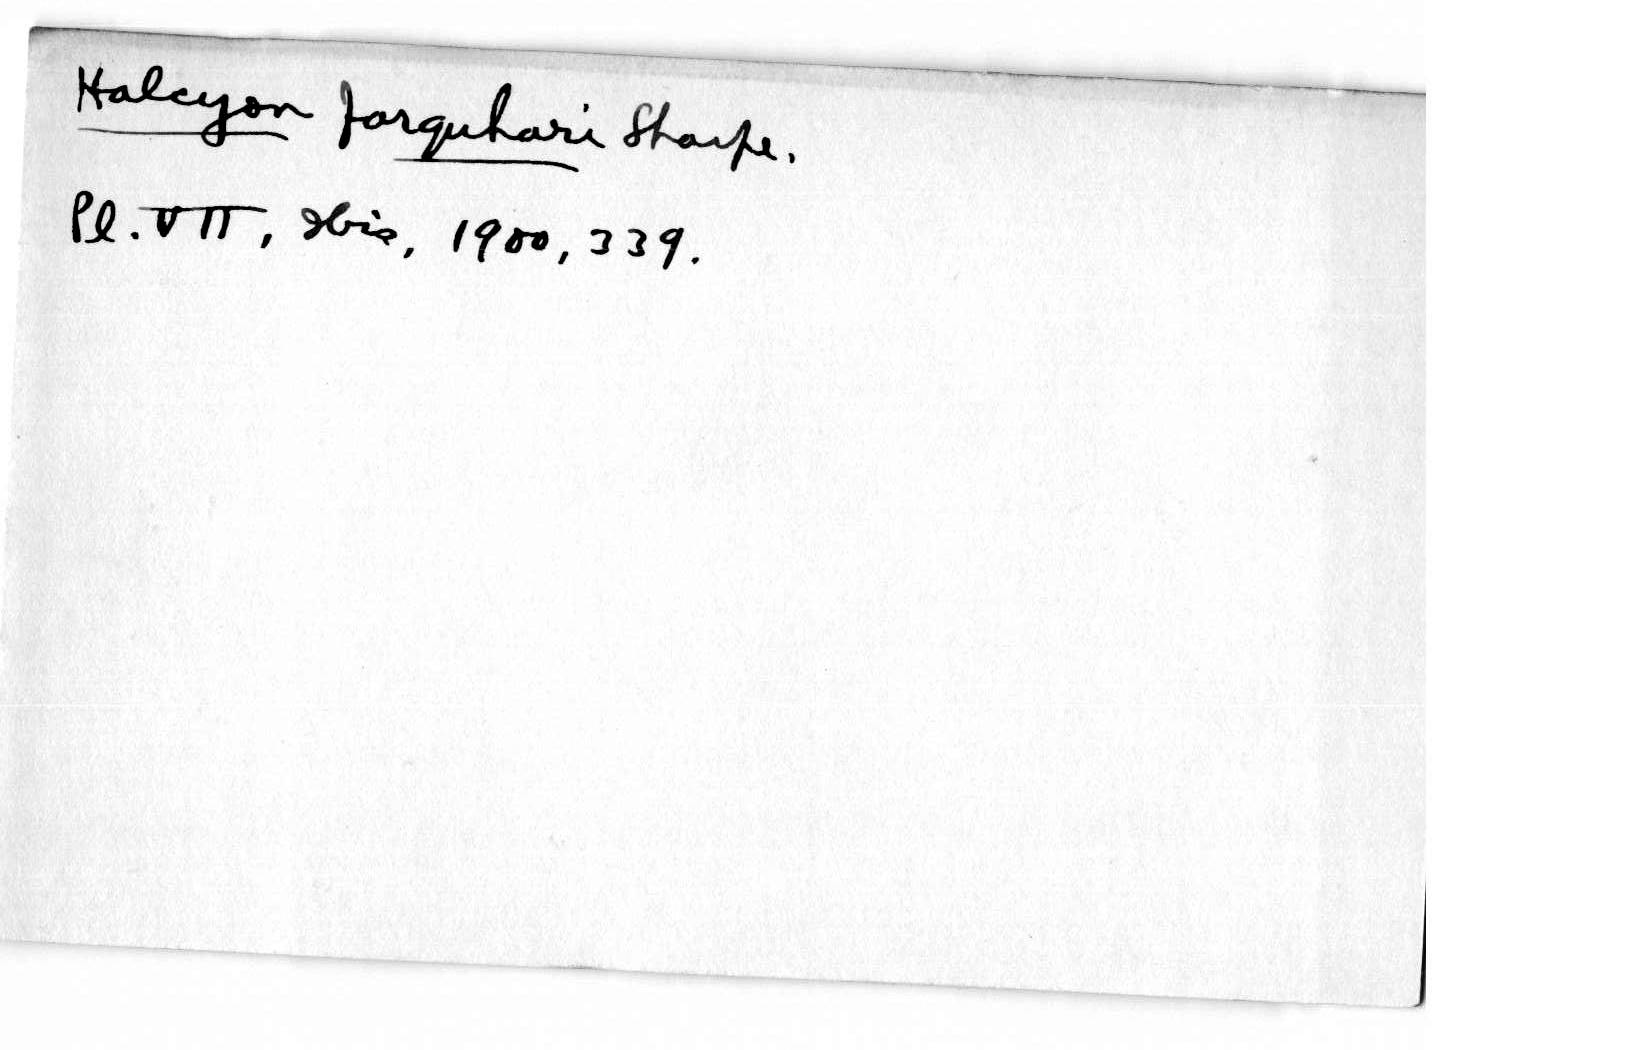 Halcyon farquhari Sharpe.
Pl. VII, Ibis, 1900, 339.